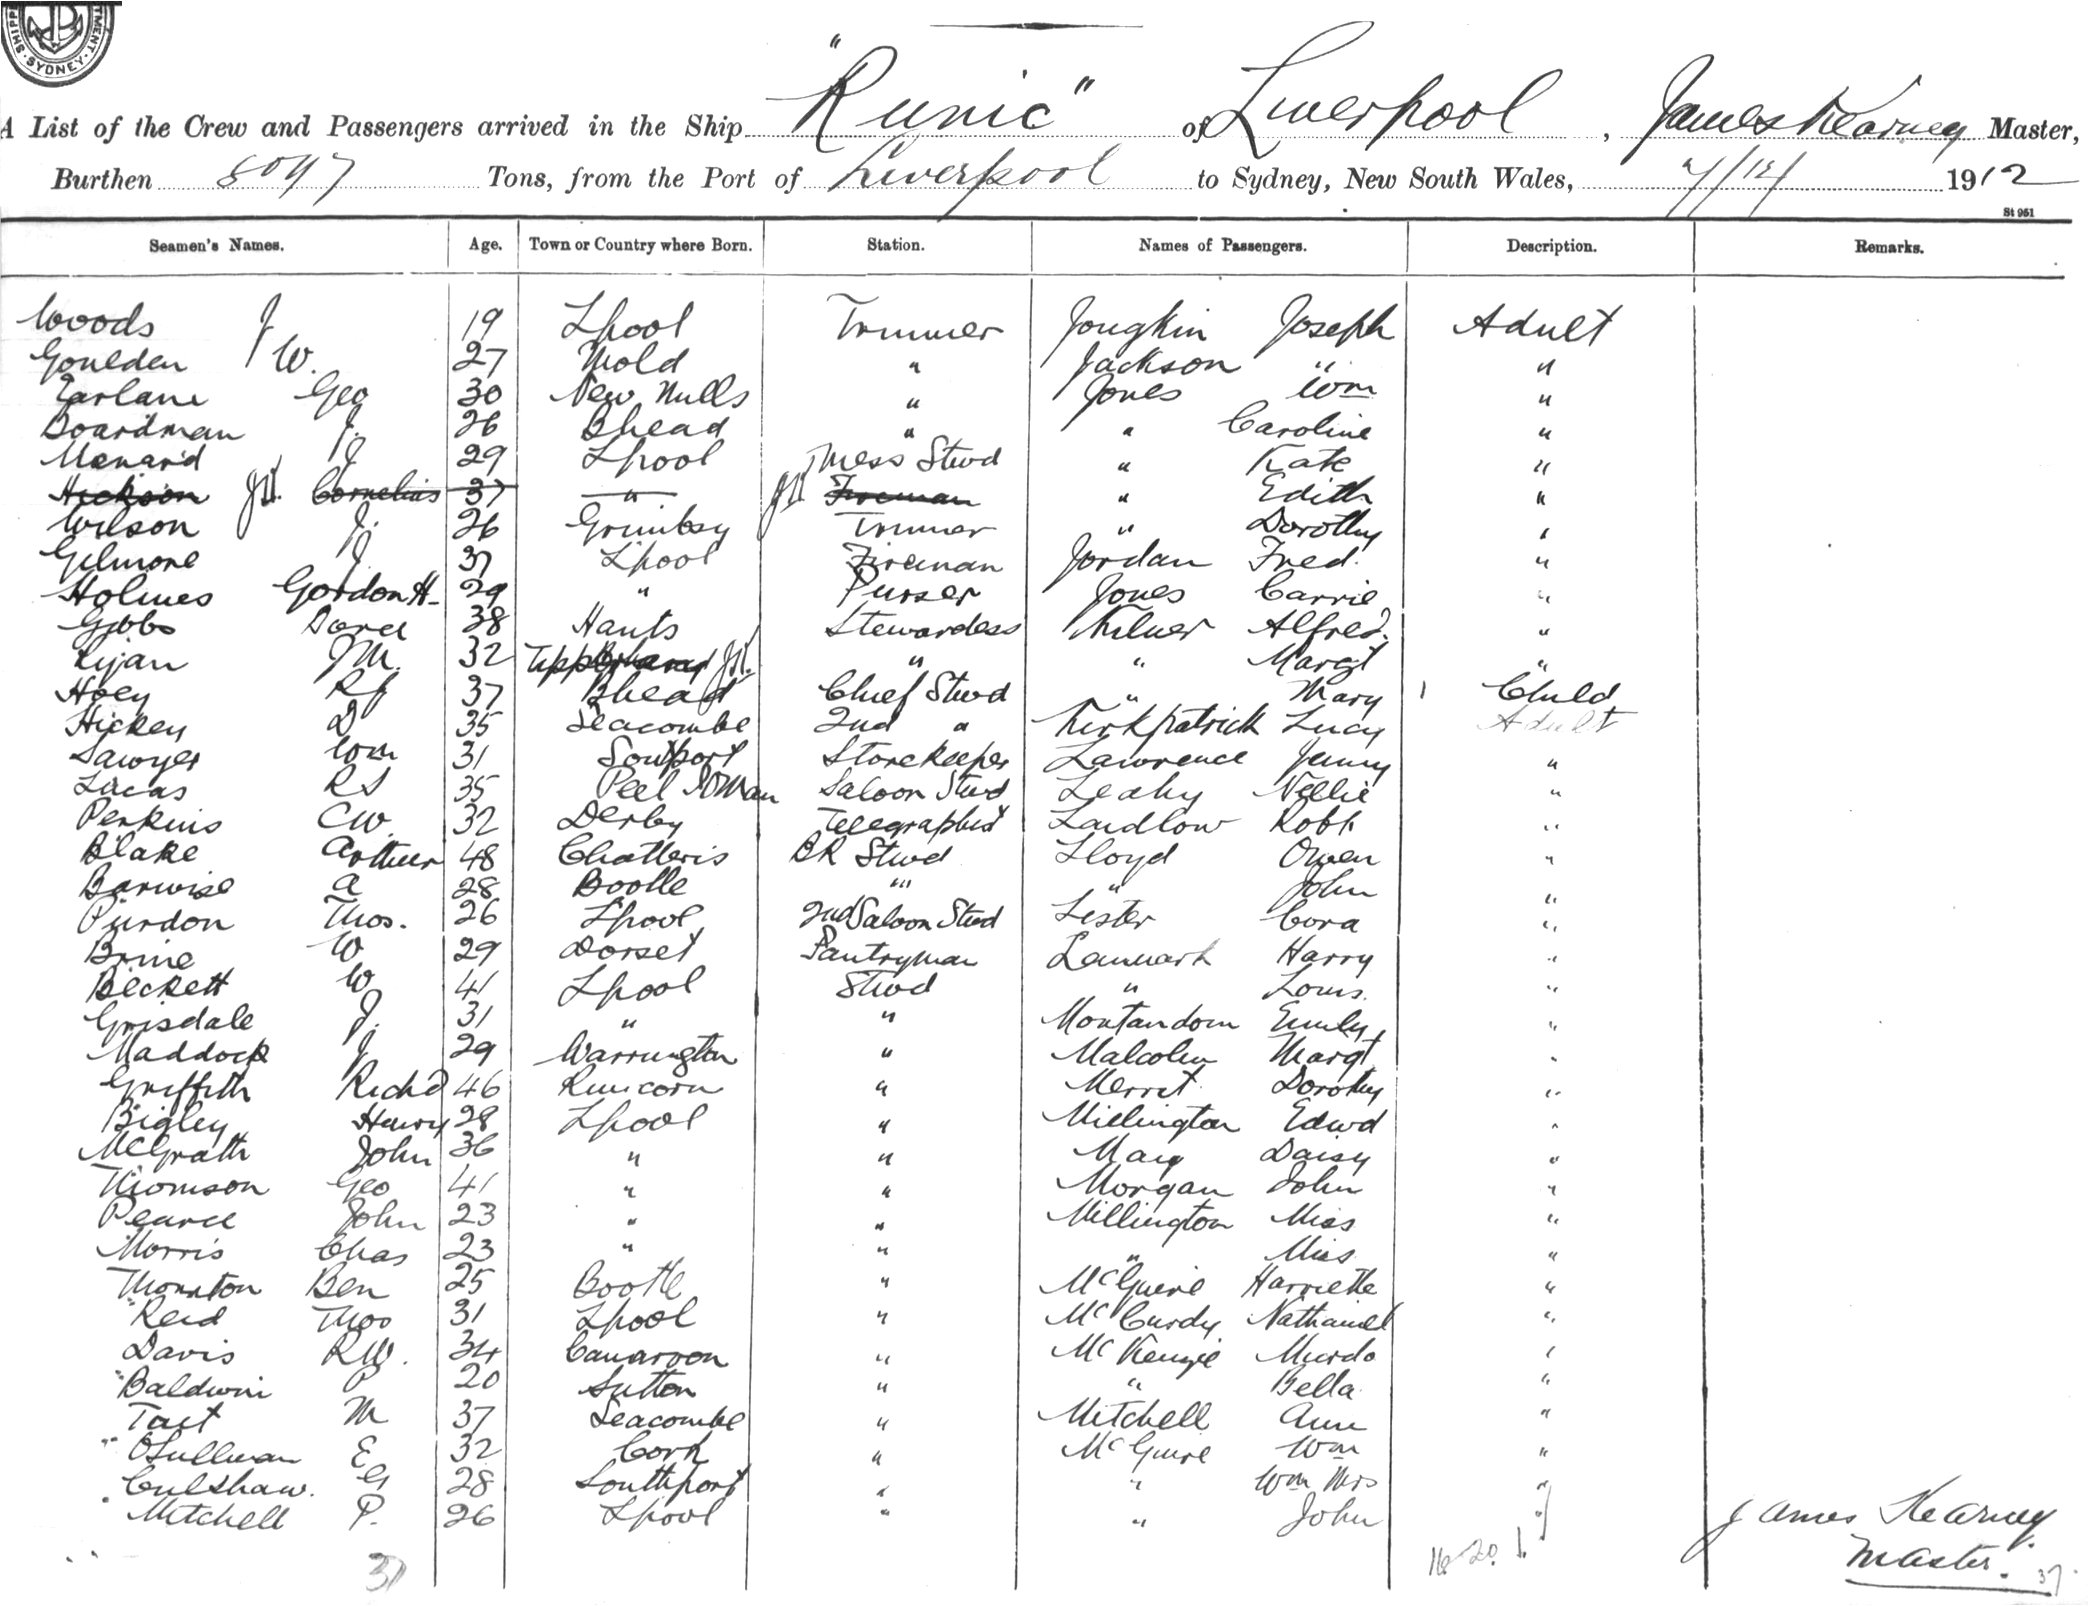 SHIPP TMENT. SYDNEY.
A List of the Crew and Passengers arrived in the Ship "Runic" of Liverpool, James Kearney Master,
Burthen 8097 Tons, from the Port of Liverpool to Sydney, New South Wales, 7/12/ 1912
St 961
Seamen's Names. Age. Town or Country where Born. Station. Names of Passengers. Description. Remarks.
Woods J 19 Lpool Trimmer Jongkin Joseph Adult
Goulden W. 27 Mold " Jackson " "
Earlane Geo 30 New Mills " Jones Wm "
Boardman J. 26 Bhead " " Caroline "
Menard J 29 Lpool Mess Stwd " Kate "
Hickson JK. Cornelius 37 " JK Fireman " Edith "
Wilson J. 26 Grimbsy Trimmer " Dorothy "
Gilmore J 37 Lpool Fireman Jordan Fred. "
Holmes Gordon H- 29 " Purser Jones Carrie "
Gibbs Dora 38 Hants Stewardess Kilner Alfred. "
Ryan J.M. 32 JK. " " Margt "
Hoey RJ 37 Bhead Chief Stwd " Mary 1 Child
Hickey D 35 Seacombe 2nd " Kirkpatrick Lucy Adult
Sawyer Wm 31 Southport Storekeeper Lawrence Jenny "
Lucas RS 35 Peel IOMan Saloon Stwd Leahy Nellie "
Perkins CW. 32 Derby Telegraphist Laidlow Robt. "
Blake Arthur 48 Chatteris BR Stwd Lloyd Owen "
Barwise A 28 Bootle "" " John "
Purdon Thos. 26 Lpool 2nd Saloon Stwd Lester Cora "
Brine W 29 Dorset Pantryman Lenmark Harry "
Beckett W 41 Lpool Stwd " Louis. "
Grisdale J. 31 " " Montandom Emily, "
Maddock J 29 Warrington " Malcolm Margt "
Griffith Richd 46 Runcorn " Merret Dorothy "
Bigley Henry 28 Lpool " Millington Edwd "
McGrath John 36 " " May Daisy "
Thomson Geo 41 " " Morgan John "
Pearce John 23 " " Millington Miss "
Morris Chas 23 " " " Miss "
Thornton Ben 25 Bootle " McGuire Harriette "
Reid Thos 31 Lpool " McCurdy Nathaniel "
Davis R.W. 34 Canarvon " McKenzie Murdo "
Baldwin P 20 Sutton " " Bella "
Tait M 37 Seacombe " Mitchell Ann "
O'Sullivan E 32 Cork " McGuire Wm "
Culshaw. G 28 Southport " " Wm Mrs "
Mitchell P. 26 Lpool " " John "
James Kearney.
Master.
37
16 20 1.
37.